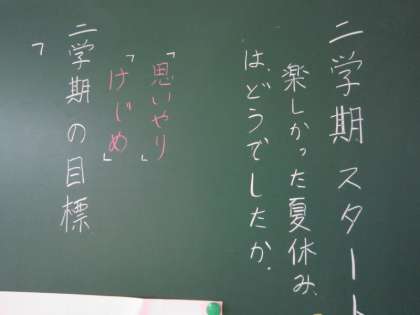 二学期スタート
楽しかった夏休み、
は、どうでしたか。
「思いやり」
「けじめ」
二学期の目標
「